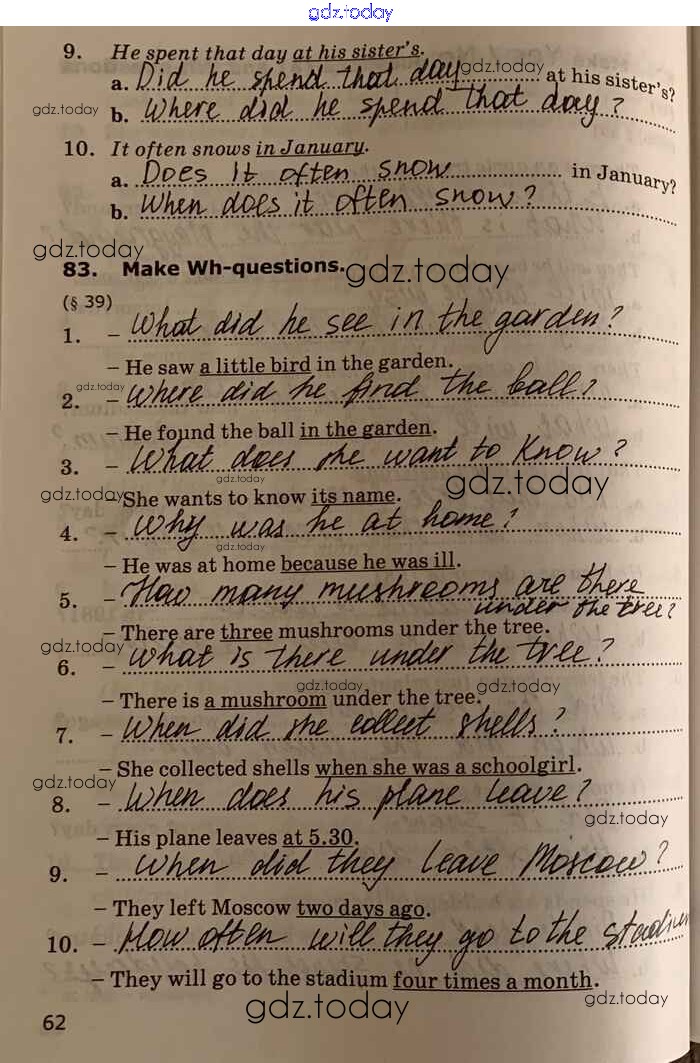 gdz.today
9. He spent that day at his sister's.
a. Did he spend that day gdz.today at his sister's?
gdz.today b. Where did he spend that day?
10. It often snows in January.
a. Does it often snow in January?
b. When does it often snow?
gdz.today
83. Make Wh-questions. gdz.today
(§ 39)
1. – What did he see in the garden?
– He saw a little bird in the garden.
gdz.today
2. – Where did he find the ball?
– He found the ball in the garden.
3. – What does she want to know?
gdz.today gdz.today
gdz.today – She wants to know its name.
4. – Why was he at home?
gdz.today
– He was at home because he was ill.
5. – How many mushrooms are there
under the tree?
– There are three mushrooms under the tree.
gdz.today
6. – What is there under the tree?
gdz.today gdz.today
– There is a mushroom under the tree.
7. – When did she collect shells?
– She collected shells when she was a schoolgirl.
gdz.today
8. – When does his plane leave?
gdz.today
– His plane leaves at 5.30.
9. – When did they leave Moscow?
– They left Moscow two days ago.
10. – How often will they go to the stadium
– They will go to the stadium four times a month.
gdz.today gdz.today
62